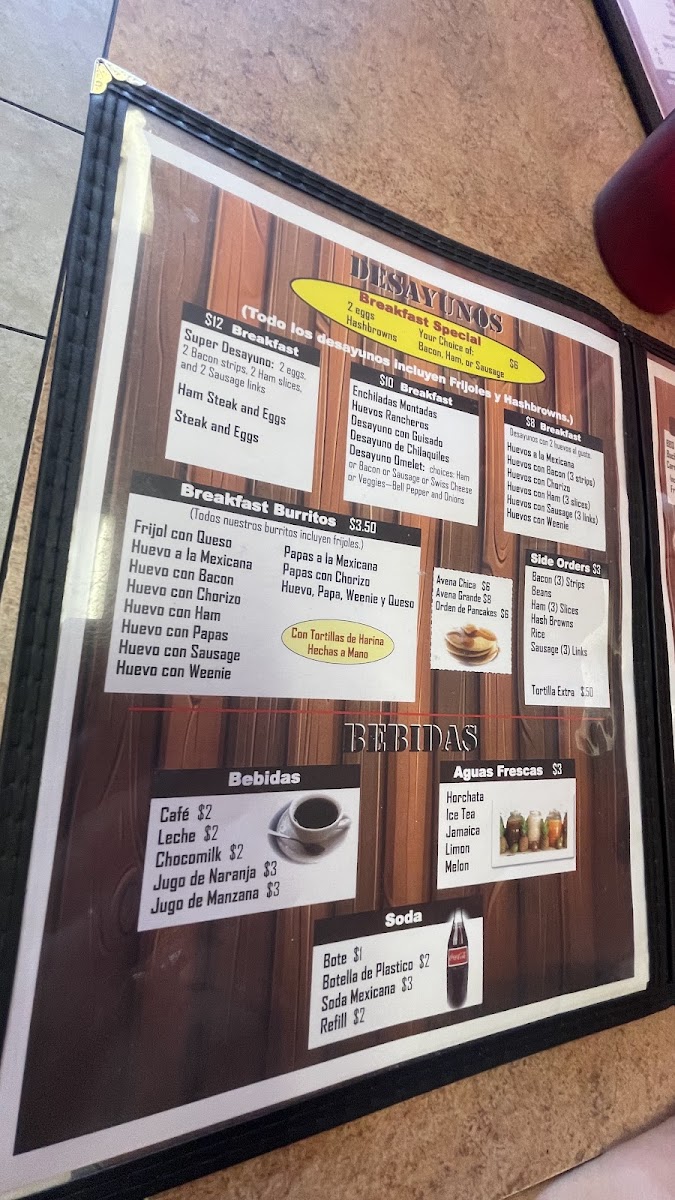 DESAYUNOS
Breakfast Special
2 eggs
Hashbrowns
Your Choice of:
Bacon, Ham, or Sausage
$6
(Todo los desayunos incluyen Frijoles y Hashbrowns.)
$12 Breakfast
Super Desayuno: 2 eggs,
2 Bacon strips, 2 Ham slices,
and 2 Sausage links
Ham Steak and Eggs
Steak and Eggs
$10 Breakfast
Enchiladas Montadas
Huevos Rancheros
Desayuno con Guisado
Desayuno de Chilaquiles
Desayuno Omelet: choices: Ham
or Bacon or Sausage or Swiss Cheese
or Veggies—Bell Pepper and Onions
$8 Breakfast
Desayunos con 2 huevos al gusto.
Huevos a la Mexicana
Huevos con Bacon (3 strips)
Huevos con Chorizo
Huevos con Ham (3 slices)
Huevos con Sausage (3 links)
Huevos con Weenie
Breakfast Burritos $3.50
(Todos nuestros burritos incluyen frijoles.)
Frijol con Queso
Huevo a la Mexicana
Huevo con Bacon
Huevo con Chorizo
Huevo con Ham
Huevo con Papas
Huevo con Sausage
Huevo con Weenie
Papas a la Mexicana
Papas con Chorizo
Huevo, Papa, Weenie y Queso
Con Tortillas de Harina
Hechas a Mano
Avena Chica $6
Avena Grande $8
Orden de Pancakes $6
Side Orders $3
Bacon (3) Strips
Beans
Ham (3) Slices
Hash Browns
Rice
Sausage (3) Links
Tortilla Extra $.50
BEBIDAS
Bebidas
Café $2
Leche $2
Chocomilk $2
Jugo de Naranja $3
Jugo de Manzana $3
Aguas Frescas $3
Horchata
Ice Tea
Jamaica
Limon
Melon
Soda
Bote $1
Botella de Plastico $2
Soda Mexicana $3
Refill $2
Coca-Cola